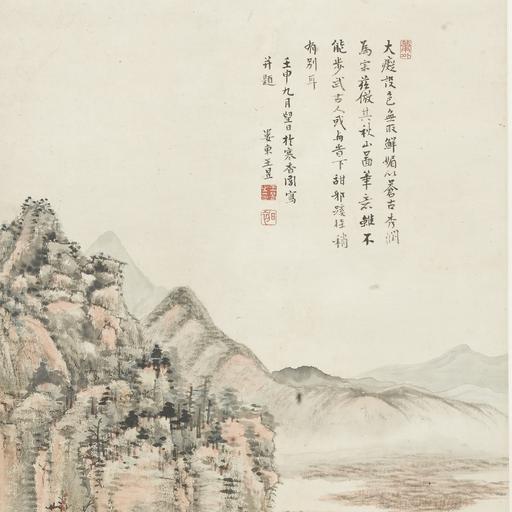 大癡設色無取鮮媚以蒼古秀潤
為宗茲倣其秋山圖筆意雖不
能步武古人或與旹下甜邪蹊徑稍
有別耳
壬申九月望日於寒香閣寫
并題 婁東王昱